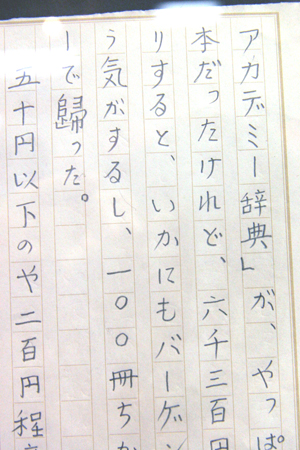 アカデミー辞典」が、やっぱ
本だったけれど、六千三百円
りすると、いかにもバーゲン
う気がするし、一〇〇冊ちか
ーで歸った。
五十円以下のや二百円程